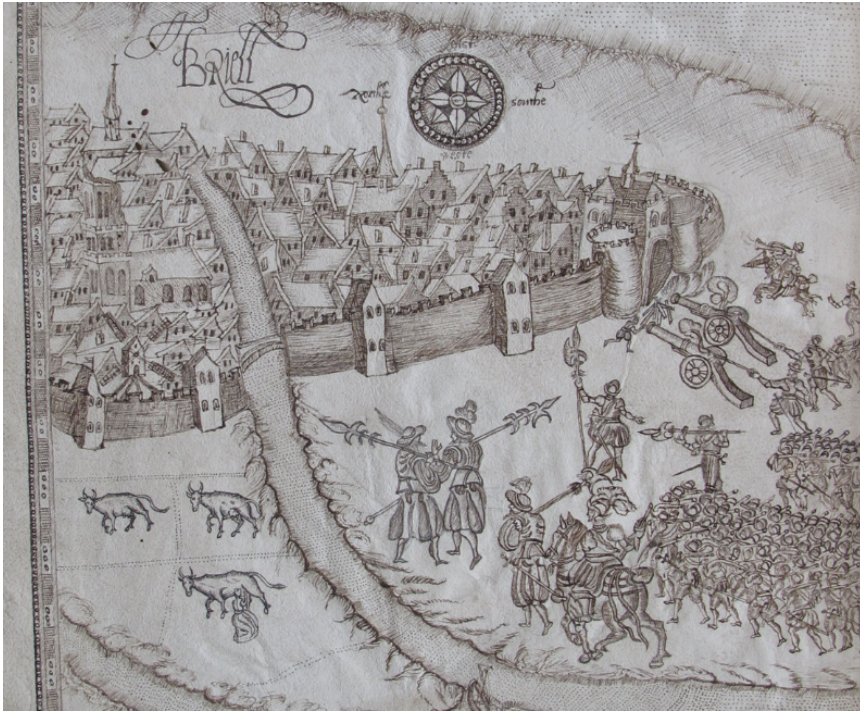 Briell
northe
southe
weste